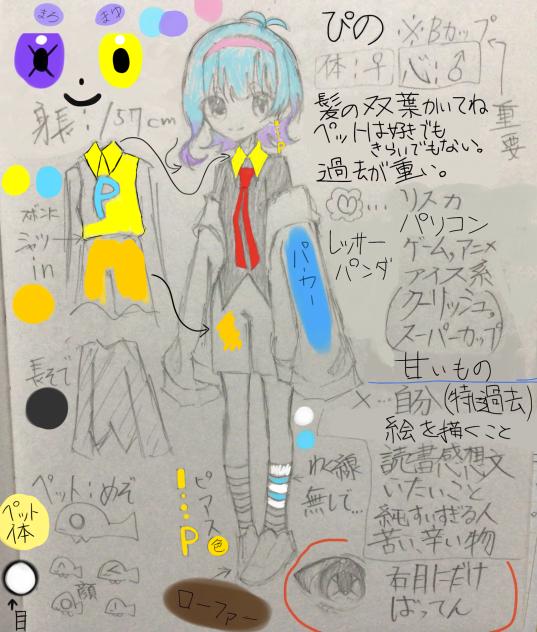 まろ
まゆ
ぴの
※Bカップ
体:♀
心:♂
重要
身長:157cm
髪の双葉かいてね
ペットは好きでも
きらいでもない。
過去が重い。
P
ズボンに
シャツ
in
パーカー
…リスカ
パソコン
レッサー
パンダ
ゲーム,アニメ
アイス系
クーリッシュ。
スーパーカップ
甘いもの
×…自分(特に過去)
絵を描くこと
読書感想文
いたいこと
純すいすぎる人
苦い、辛い物
長そで
わく線
無しで…
ピアス
P
色
ペット:めぞ
ペット
体
顔
↑
目
ローファー
右目にだけ
ばってん